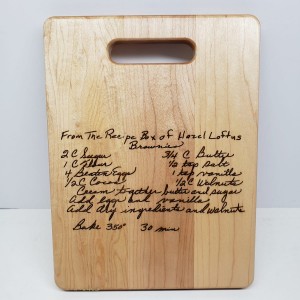 From The Recipe Box of Hazel Loftus
Brownies
2 C Sugar 3/4 C Butter
1 C Flour 1/2 tsp salt
4 Beaten Eggs 1 tsp vanilla
1/2 C Cocoa 1/2 C Walnuts
Cream together butter and sugar
Add eggs and vanilla
Add dry ingredients and walnuts
Bake 350° 30 min